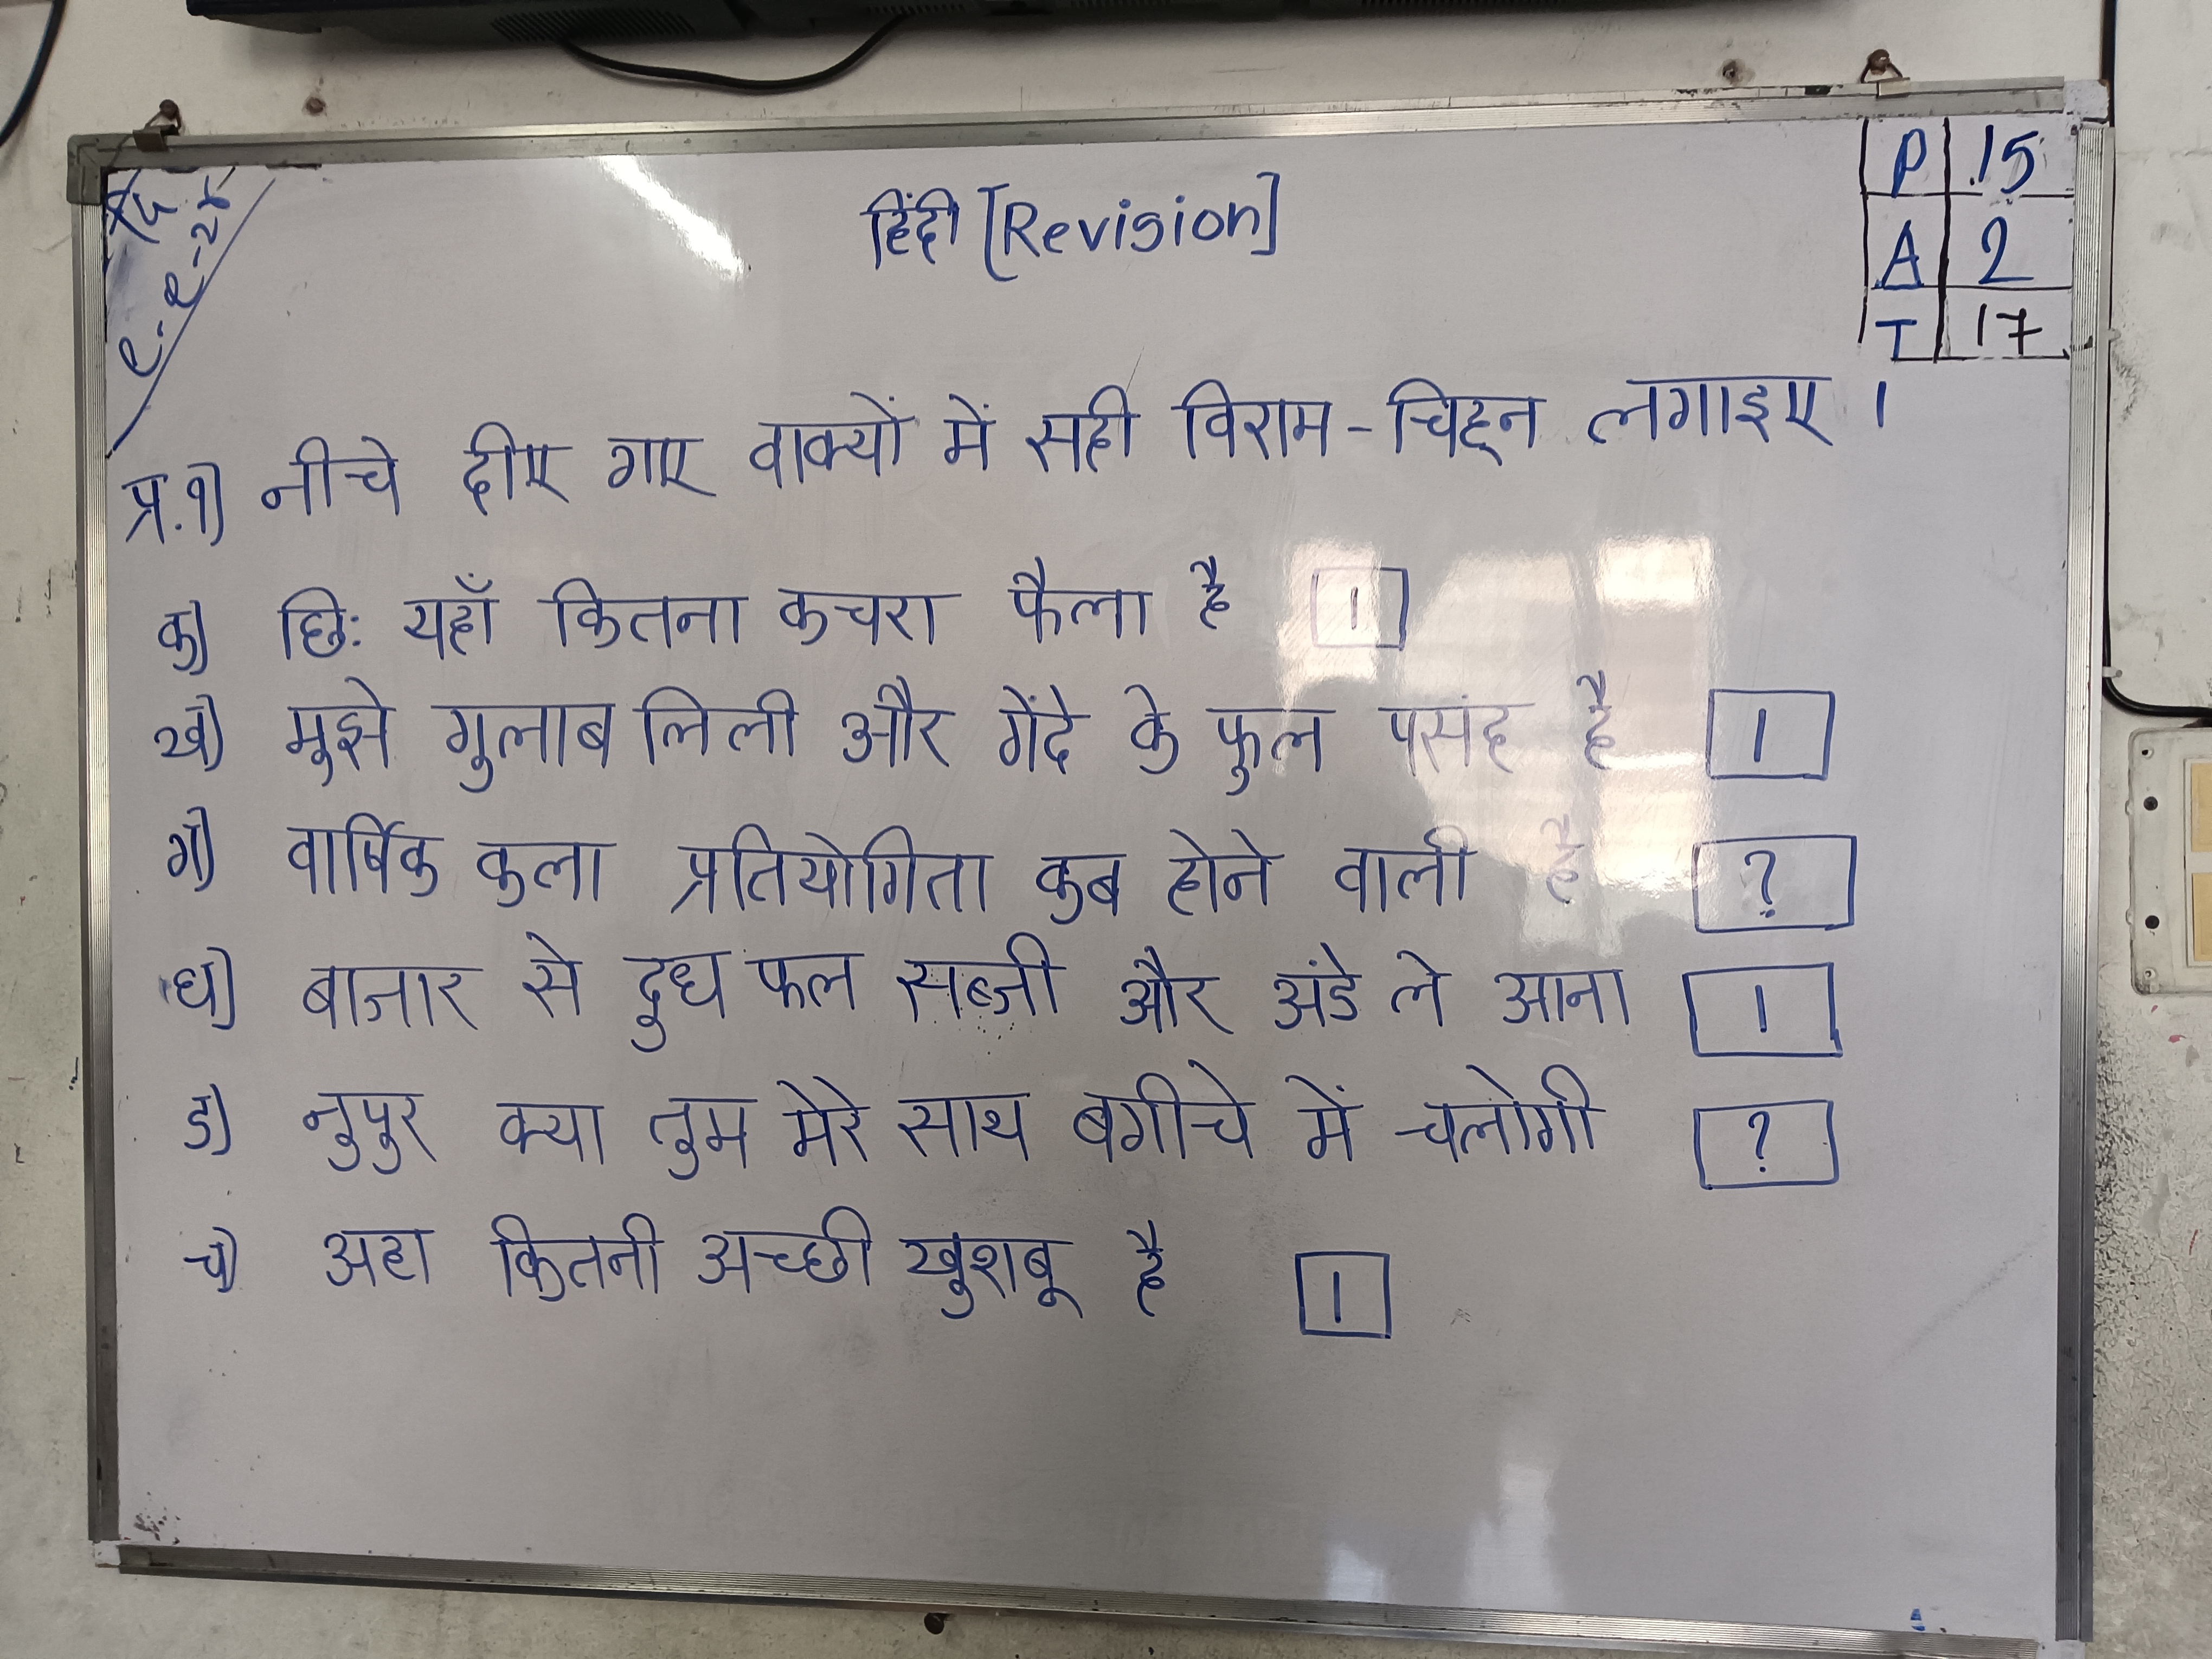 हिंदी [Revision]
P 15
A 2
T 17
प्र.१) नीचे दीए गए वाक्यों में सही विराम-चिह्न लगाइए ।
क) छि: यहाँ कितना कचरा फैला है ।
ख) मुझे गुलाब लिली और गेंदे के फुल पसंद है ।
ग) वार्षिक कला प्रतियोगिता कब होने वाली है ?
घ) बाजार से दुध फल सब्जी और अंडे ले आना ।
ड) नुपुर क्या तुम मेरे साथ बगीचे में चलोगी ?
च) अहा कितनी अच्छी खुशबू है ।